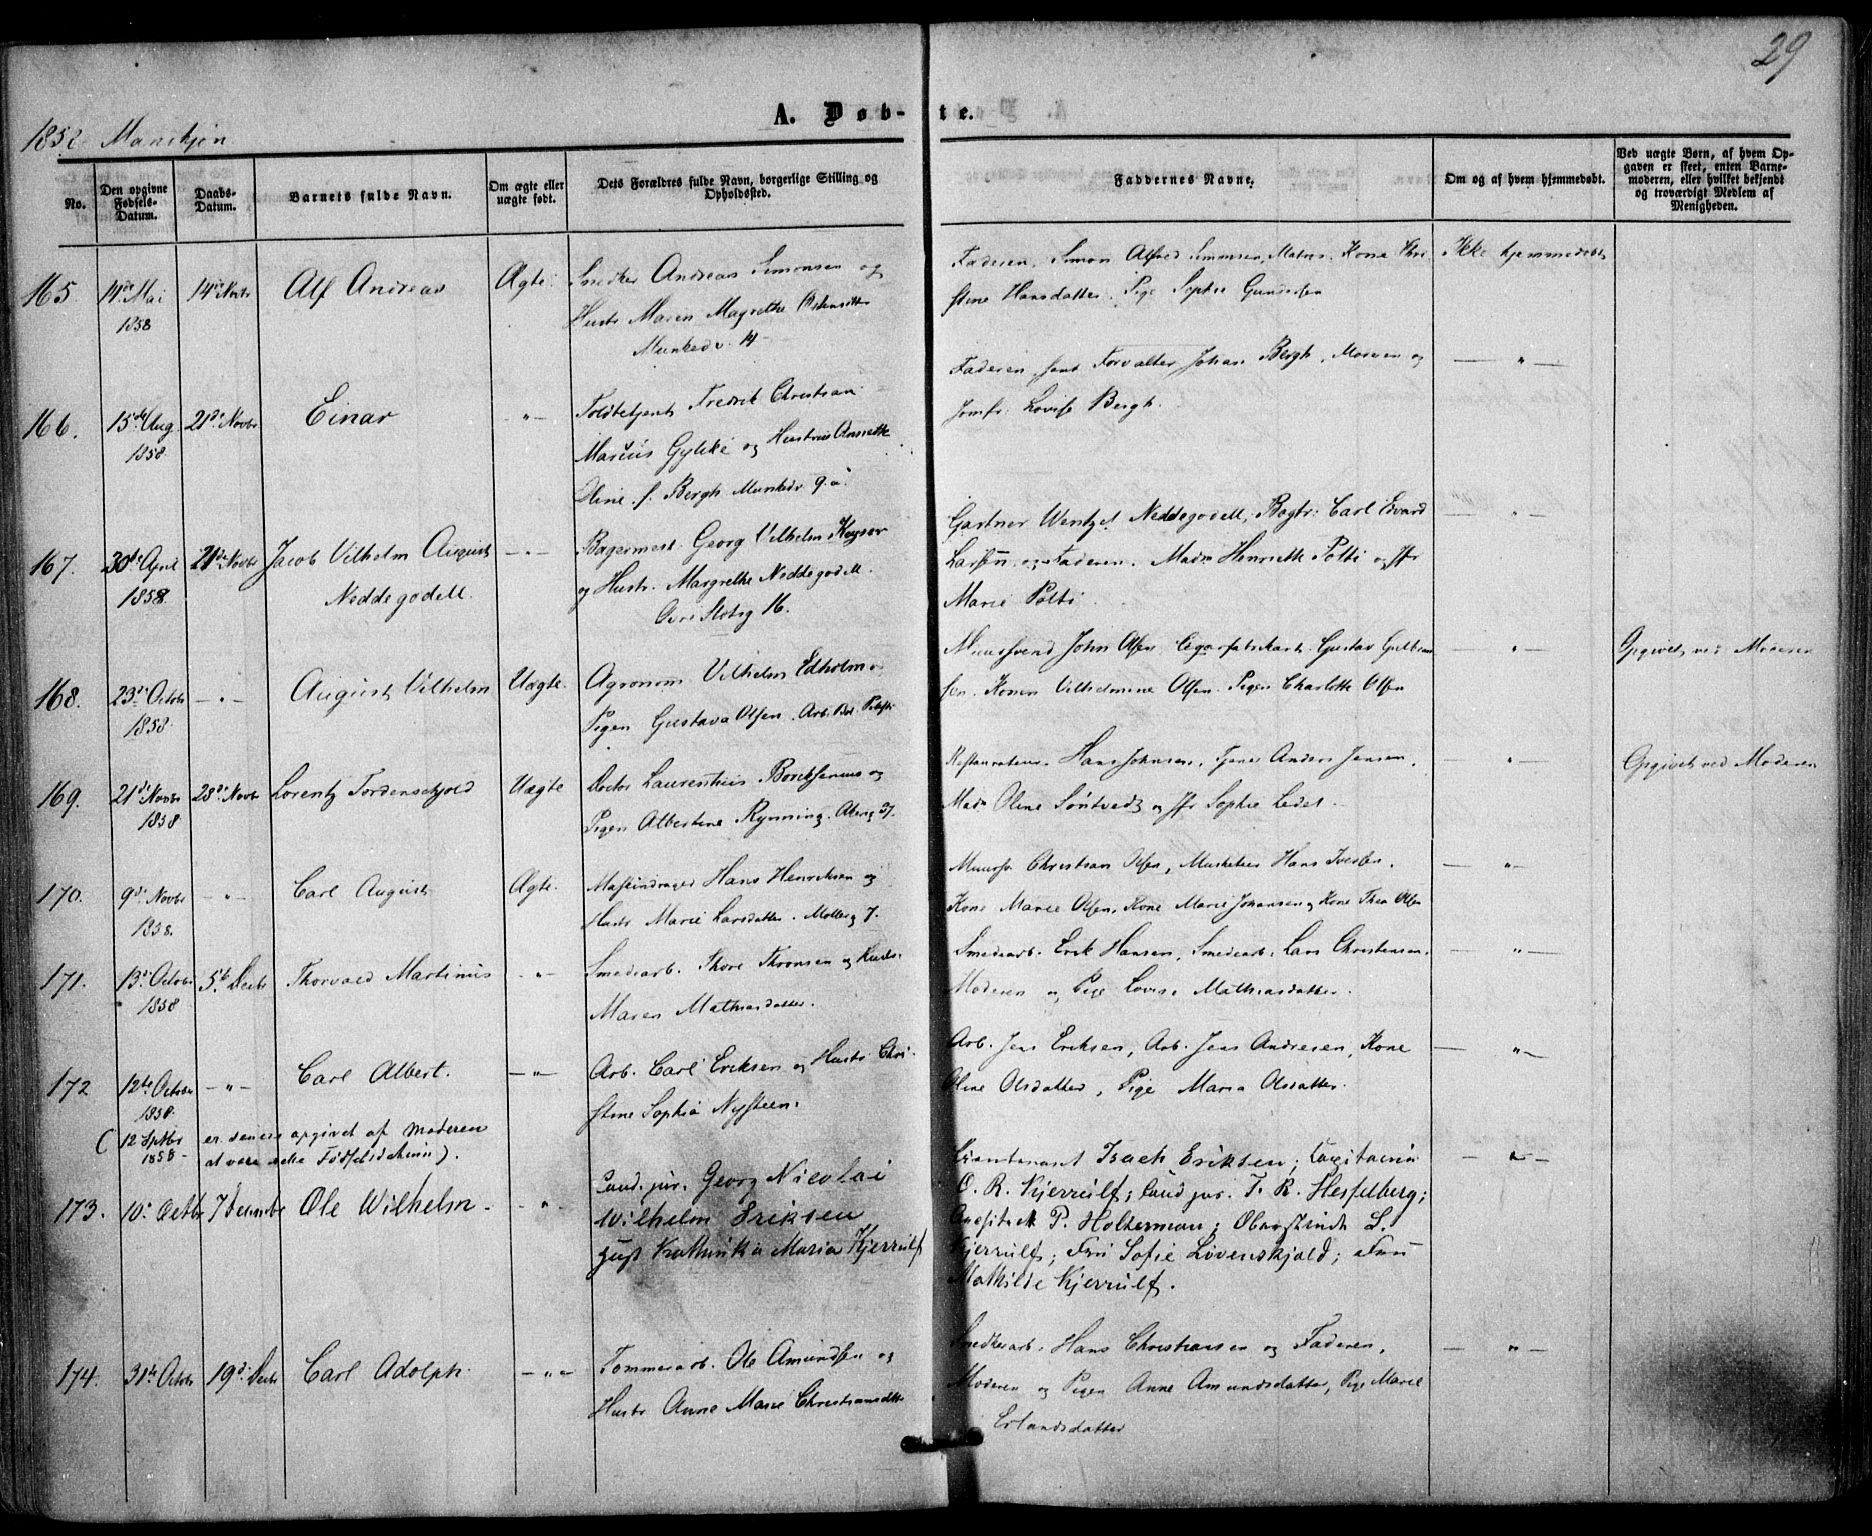 29
A. Døbte.
1858 Mandkjøn
No.
Den opgivne Fødsels-Datum.
Daabs-Datum.
Barnets fulde Navn.
Om ægte eller uægte født.
Dets Forældres fulde Navn, borgerlige Stilling og Opholdssted.
Faddernes Navne.
Om og af hvem hjemmedøbt.
Ved uægte Børn, af hvem Opgaven er skeet, enten Barnemoderen, eller hvilket bekjendt og troværdigt Medlem af Menigheden.
165 14de Mai 1858 14de Novbr Alf Andreas Ægte.
Snedker Andreas Simonsen og
Hustr Maren Magrethe
Munkedv. 14
Faderen, Simon Alfred Simonsen, Kone Chri
stine Hansdatter. Pige Sophie Gundersen
Ikke hjemmedøbt
166. 15de Aug 1858 21de Novbr Einar — " —
Toldbetjent Fredrik Christian
Marius Gylche og Hustru Annette
Oline f. Bergh Munkedv 9.a.
Faderen, Forvalter Johan Bergh, Moeren og
Jomfr. Lovise Bergh.
— " —
167. 30de April 1858 21de Novbr Jacob Vilhelm August
Neddegodell. — " —
Bagermest. Georg Vilhelm Keyser
og Hustr. Margrethe Neddegodell.
Øvre Slotsg 16.
Gartner Wentzel Neddegodell, Bagbr: Carl Edvard
Larsen og Faderen. Mad. Henriette Polti og Jfr
Marie Polti.
— " —
168. 23de Octobr 1858 — " — August Vilhelm Uægte.
Agronom Vilhelm Edholm og
Pigen Gustava Olsen.
Muursvend John Olsen Gustav Gulbran
sen. Konen Vilhelmine Olsen. Pigen Charlotte Olsen
— " —
Opgivet ved Moderen
169. 21de Novbr 1858 28de Novbr Lorentz Tordenskjold Uægte
Doctor Laurentius Borchsenius og
Pigen Albertine Rynning. Akersg 27.
Restaurateur. Hans Johnsen, Tjener Anders Jensen,
Mad. Oline Søntvedt og Jfr Sophie Ledel
— " —
Opgivet ved Moderen
170. 9de Novbr 1858. — " — Carl August Ægte.
Hans Henriksen og
Hustr Marie Larsdatter. Mollerg 7.
Muursv Christian Olsen, Musketeer Hans Iversen,
Kone Marie Olsen, Kone Marie Johansen og Kone Thea Olsen
— " —
171. 13de Octobr 1858 5te Decbr Thorvald Martinus — " —
Smedearb. Thore Thronsen og Hustr.
Maren Mathiasdatter.
Smedearb. Erik Hansen, Smedearb. Lars Christensen,
Moderen og Pige Lovise Mathiasdatter.
— " —
172 12te Octobr 1858. — " — Carl Albert. — " —
Arb. Carl Eriksen og Hustr Chri-
stine Sophia Nysteen.
Arb. Jens Eriksen, Arb. Jens Andresen, Kone
Oline Olsdatter, Pige Maria Olsdatter.
— " —
(12 Septbr 1858 er senere opgivet af Moderen
at være rette Fødselsdatum).
173. 10de Octbr 7 December Ole Wilhelm — " —
Cand. jur. Georg Nicolai
Wilhelm Eriksen
Maria Kjerrulf
Lieutenant Isach Eriksen; Capitain
O. R. Kjerrulf; Cand jur. T. R. Hesselberg;
P. Holterman; L.
Kjerrulf; Frü Sofie Løvenskjold; Frü
Mathilde Kjerrulf.
— " —
174. 31te Octobr 19de Decbr Carl Adolph — " —
Tømmerarb. Ole Amundsen og
Hustr Anne Marie Christiansdttr
Snedkerarb. Hans Christiansen og Faderen,
Moderen og Pigen Anne Amundsdatter, Pige Marie
Erlandsdatter
— " —